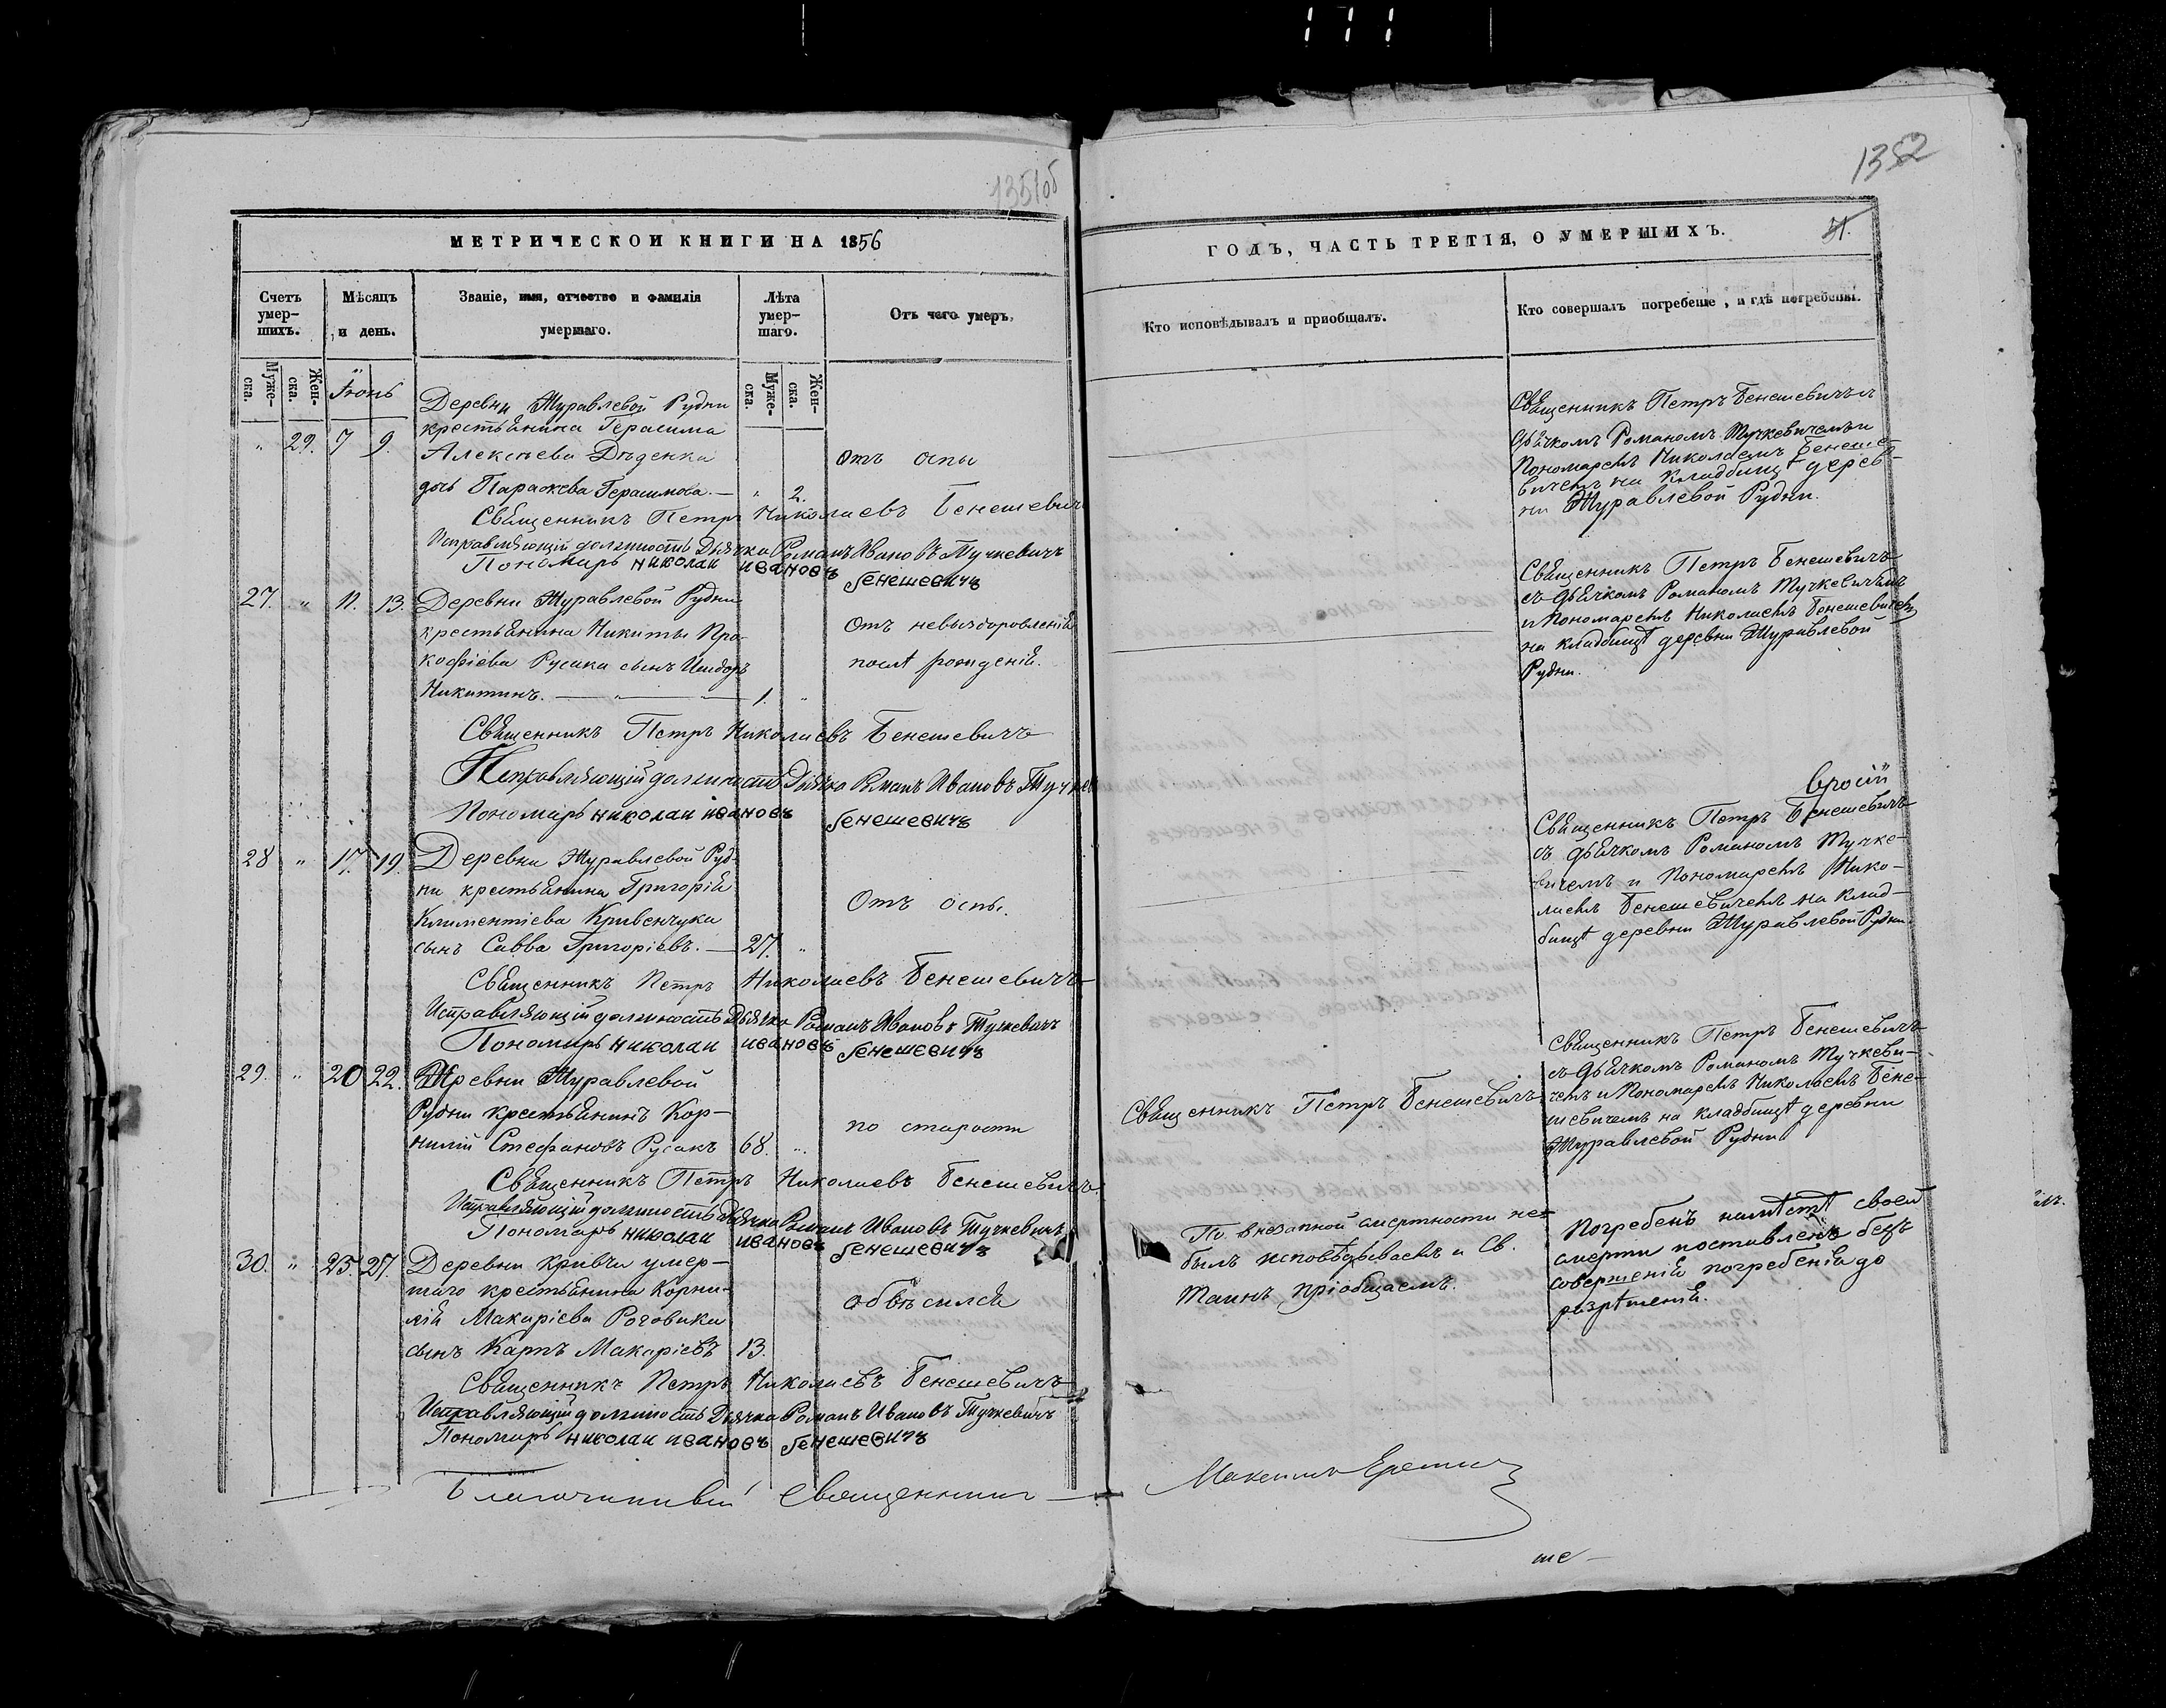 1351об
МЕТРИЧЕСКОЙ КНИГИ НА 1856
Счетъ умер-шихъ.
Мѣсяцъ и день.
Званіе, имя, отчество и фамилія умершаго.
Лѣта умер-шаго.
Отъ чего умеръ.
Муже-ска.
Жен-ска.
Іюнь
Муже-ска.
Жен-ска.
Деревни Журавлевой Рудни
крестьянина Герасима
" 29. 7 9. Алексѣева Дѣденка
отъ оспы
дочь Параскева Герасимова. — " 2.
Священникъ Петръ Николаевъ Бенешевичъ
Исправляющій должность Дьячка Романъ Ивановъ Тучкевичъ
Пономарь николаи ивановъ бенешевичъ
27. " 11. 13. Деревни Журавлевой Рудни
крестьянина Никиты Про-
Отъ невыздоровленія
кофіева Русака сынъ Исидоръ
послѣ рожденія.
Никитинъ. — " — 1. "
Священникъ Петръ Николаевъ Бенешевичъ
Исправляющій должность Дьячка Романъ Ивановъ Тучкев
Пономарь николаи ивановъ бенешевичъ
28 " 17. 19. Деревни Журавлевой Руд-
ни крестьянина Григорія
Климентіева Кривенчука
Отъ оспы.
сынъ Савва Григоріевъ. — 27. "
Священникъ Петръ Николаевъ Бенешевичъ
Исправляющій должность Дьячка Романъ Ивановъ Тучкевичъ
Пономарь николаи ивановъ бенешевичъ
29. " 20 22. Деревни Журавлевой
Рудни крестьянинъ Кор-
по старости
нилій Стефановъ Русакъ 68. "
Священникъ Петръ Николаевъ Бенешевичъ
Исправляющій должность Дьячка Романъ Ивановъ Тучкевичъ
Пономарь николаи ивановъ бенешевичъ
30. " 25. 27. Деревни Кривчи умер-
шаго крестьянина Корни-
обвѣсился
лія Макаріева Роговика
сынъ Карпъ Макаріевъ 13.
Священникъ Петръ Николаевъ Бенешевичъ
Исправляющій должность Дьячка Романъ Ивановъ Тучкевичъ
Пономарь николаи ивановъ бенешевичъ
Благочинный Священникъ
1352
ГОДЪ, ЧАСТЬ ТРЕТІЯ, О УМЕРШИХЪ.
Кто исповѣдывалъ и пріобщалъ.
Кто совершалъ погребеніе, и гдѣ погребены.
Священникъ Петръ Бенешевичъ съ
дьячкомъ Романомъ Тучкевичемъ и
Пономаремъ Николаемъ Бенеше-
вичемъ на кладбищѣ дерев-
ни Журавлевой Рудни.
Священникъ Петръ Бенешевичъ
съ дьячкомъ Романомъ Тучкевичемъ
и Пономаремъ Николаемъ Бенешевичемъ
на кладбищѣ деревни Журавлевой
Рудни.
Священникъ Петръ Бенешевичъ
съ дьячкомъ Романомъ Тучке-
вичемъ и Пономаремъ Нико-
лаемъ Бенешевичемъ на клад-
бищѣ деревни Журавлевой Рудни.
Священникъ Петръ Бенешевичъ
Священникъ Петръ Бенешевичъ
съ дьячкомъ Романомъ Тучкеви-
чемъ и Пономаремъ Николаемъ Бене-
шевичемъ на кладбищѣ деревни
Журавлевой Рудни
По внезапной смертности не
былъ исповѣдываемъ и Св.
Таинъ пріобщаемъ.
Погребенъ на мѣстѣ своей
смерти поставленъ безъ
совершенія погребенія до
разрѣшенія.
Максимъ
ше-